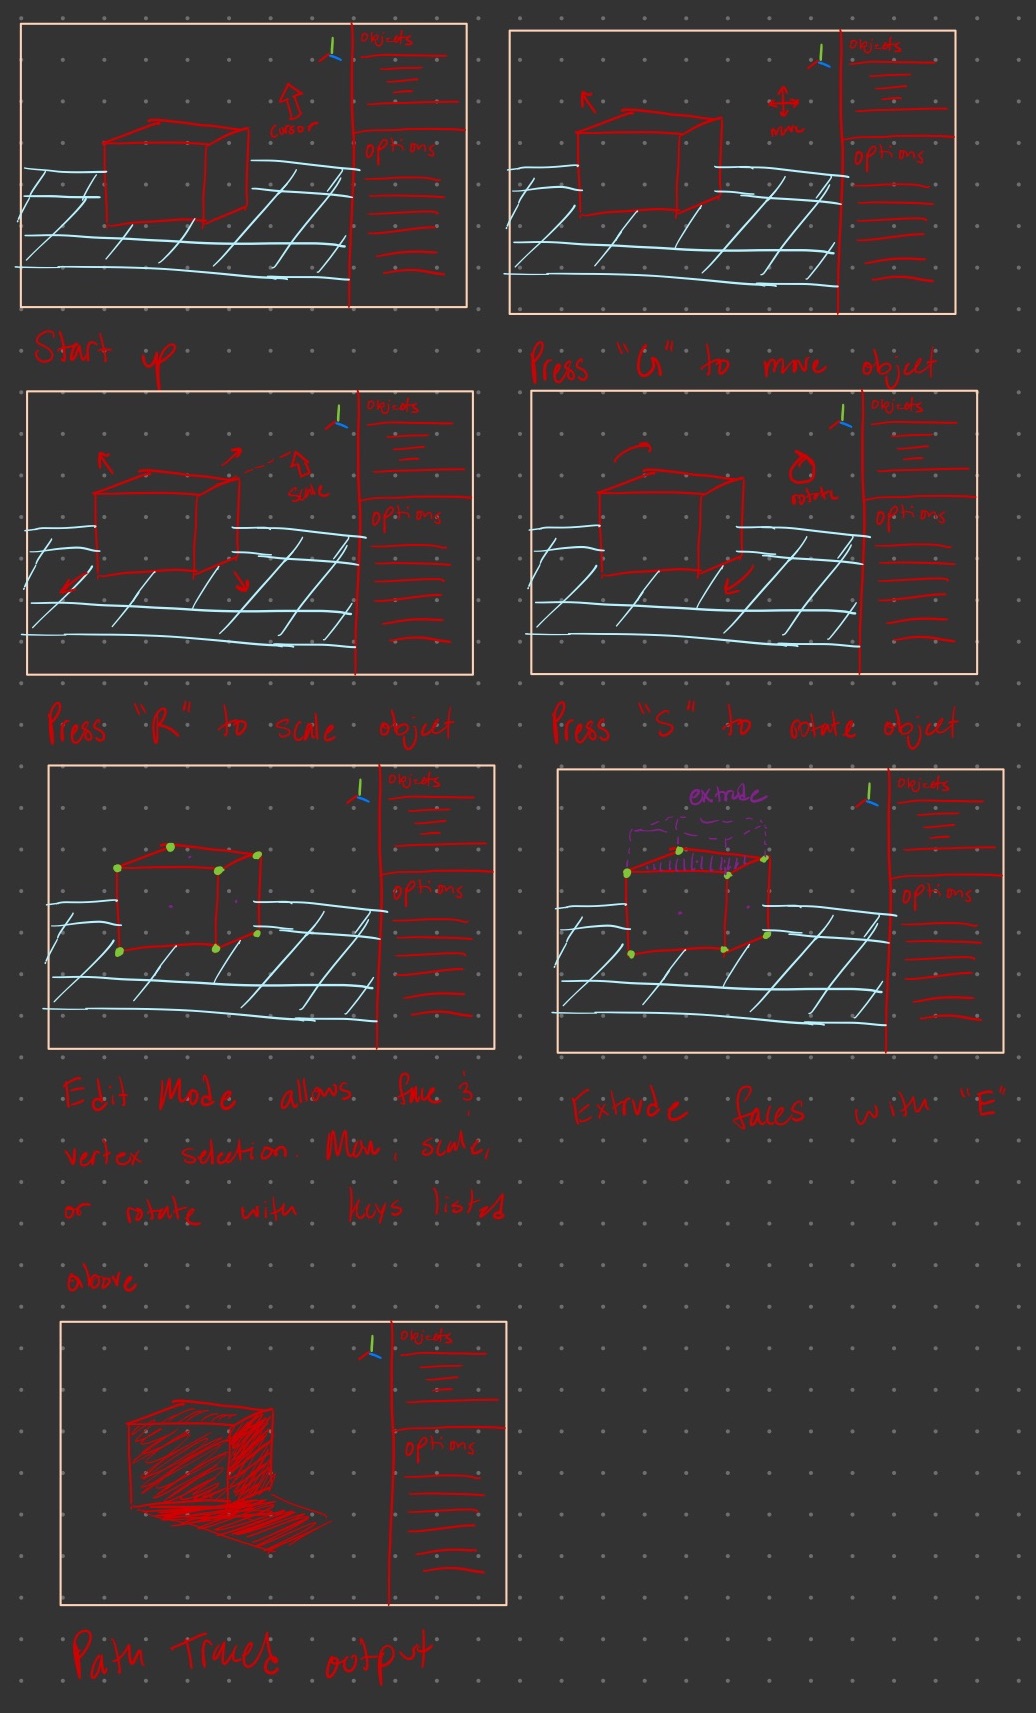 Objects
cursor
Options
Start up
Objects
move
Options
Press "G" to move object
Objects
scale
Options
Press "R" to scale object
Objects
rotate
Options
Press "S" to rotate object
Objects
Options
Edit Mode allows face &
vertex selection. Move, scale,
or rotate with keys listed
above
extrude
Objects
Options
Extrude faces with "E"
Objects
Options
Path Traced output